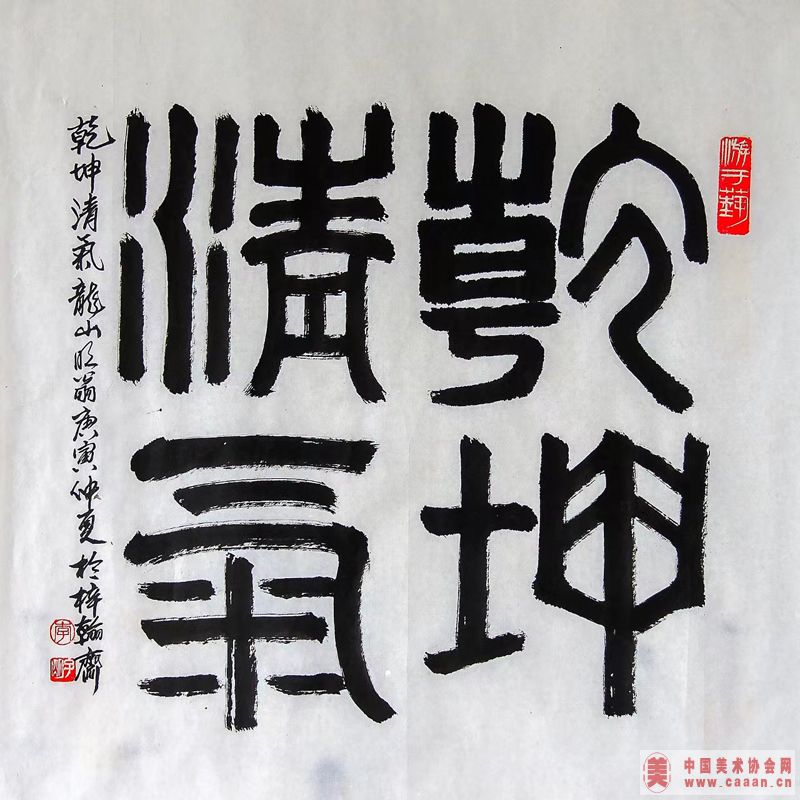 游于藝
乾坤
清氣
乾坤清氣 龍山翁庚寅仲夏於梓翰齋
李
美
中国美术协会网
www.caaan.cn